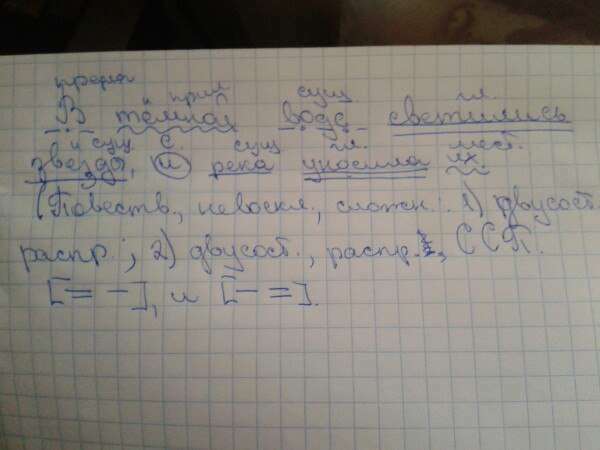 предл прил сущ гл.
В тёмной воде светились
сущ с. сущ гл. мест.
звезды, и река уносила их.
(Повеств., невоскл., сложн.: 1) двусост.
распр.; 2) двусост., распр., ССП.
[= -], и [- =].